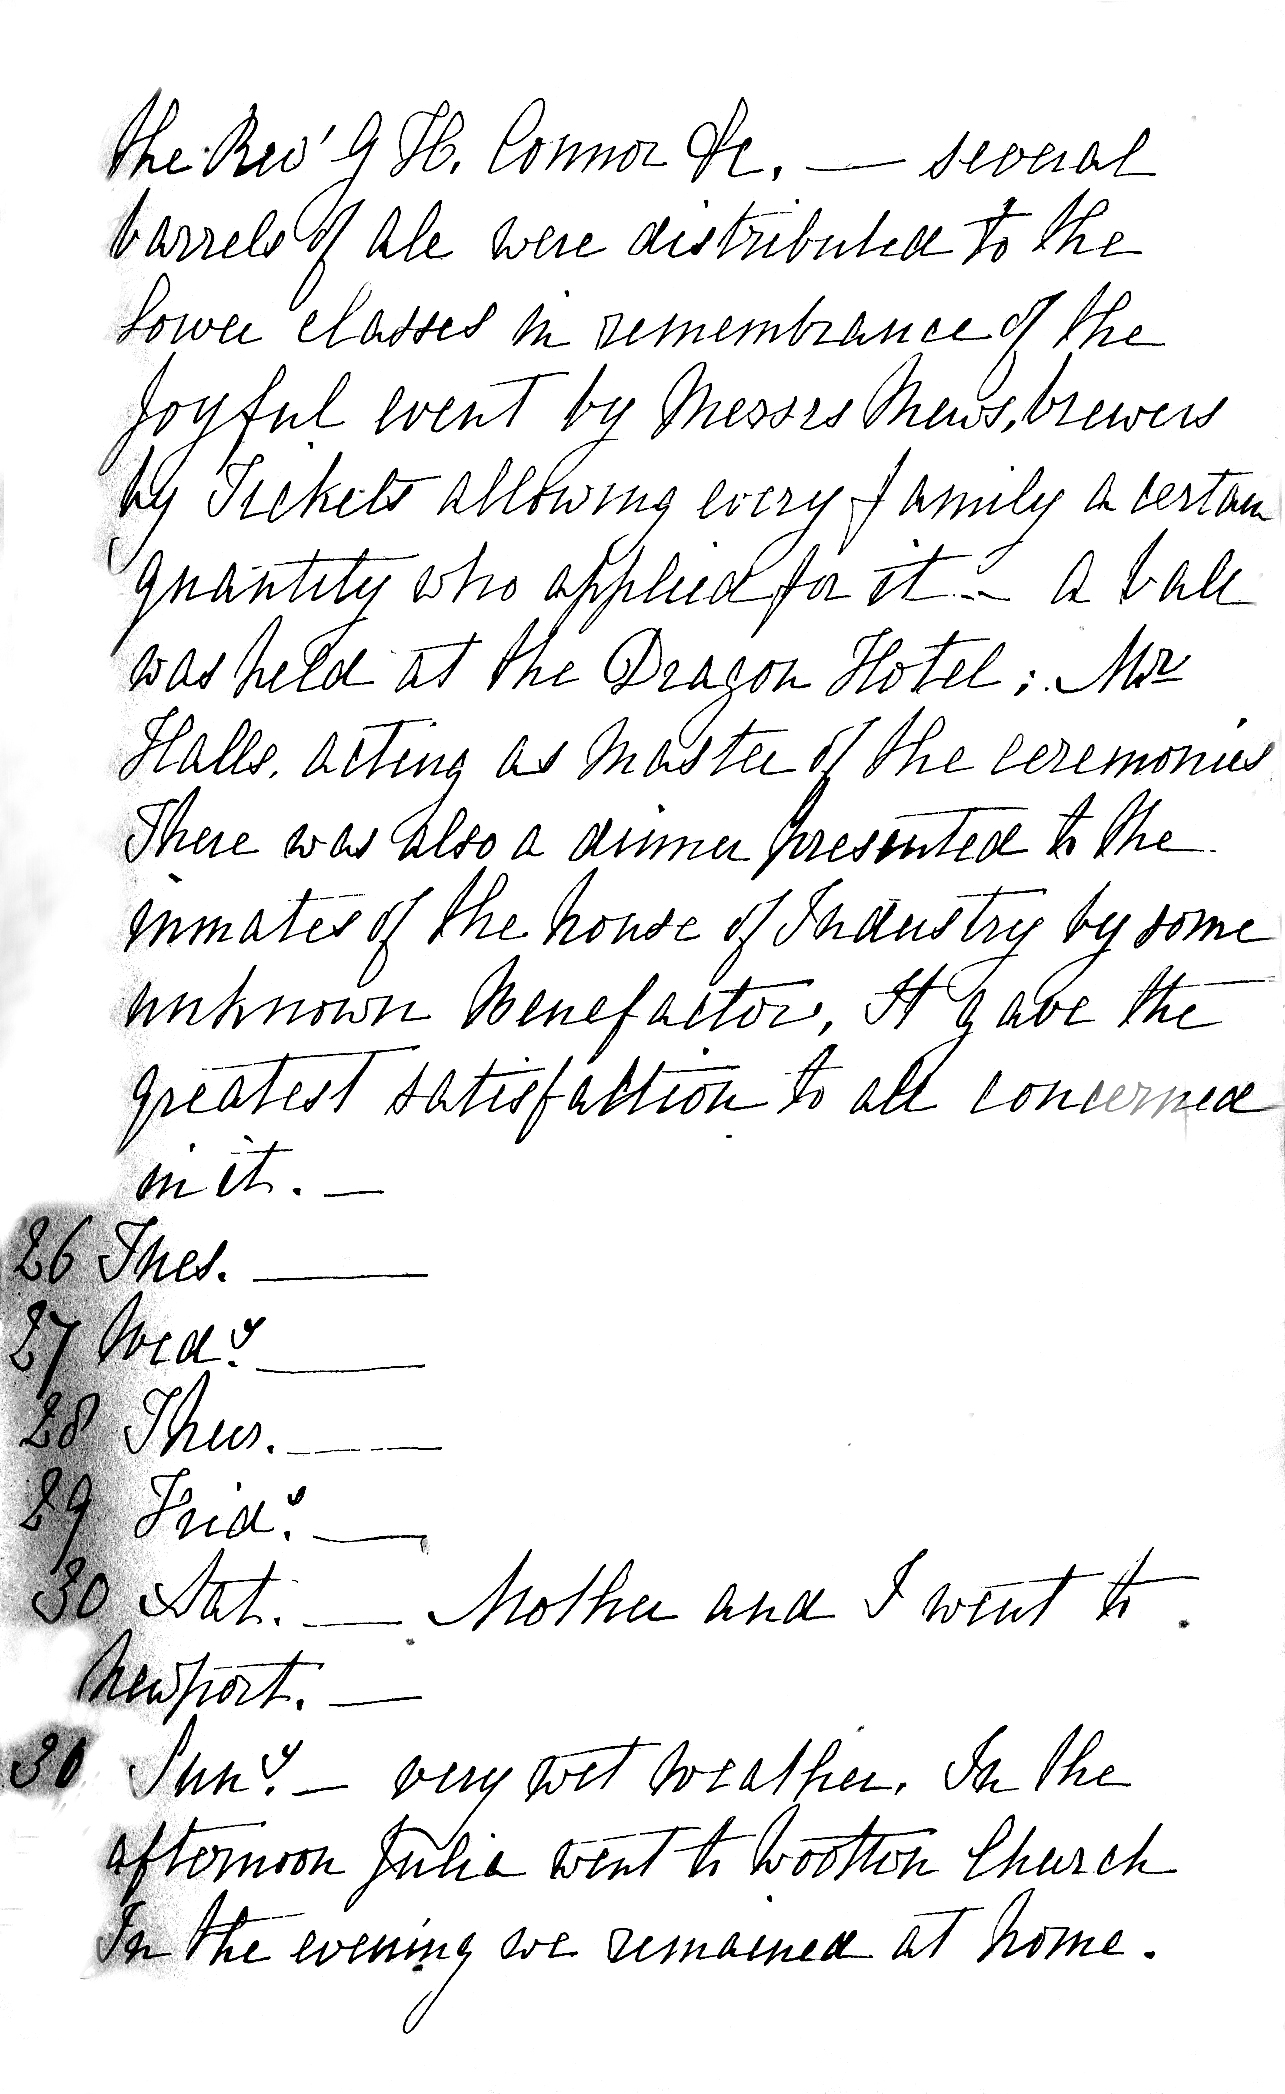 the Rev' G H. Connor &c. — several
barrels of ale were distributed to the
lower classes in remembrance of the
Joyful event by Messrs Mews, brewers
by Tickets allowing every family a certain
quantity who applied for it. — A ball
was held at the Dragon Hotel; Mr
Halls. acting as Master of the ceremonies
There was also a dinner presented to the
inmates of the house of Industry by some
unknown Benefactor, It gave the
greatest satisfaction to all concerned
in it. —
26 Tues. —
27 Wedy. —
28 Thur. —
29 Fridy. —
30 Sat. — Mother and I went to
Newport. —
30 Suny. — very wet weather. In the
afternoon Julia went to Wootton Church
In the evening we remained at home.